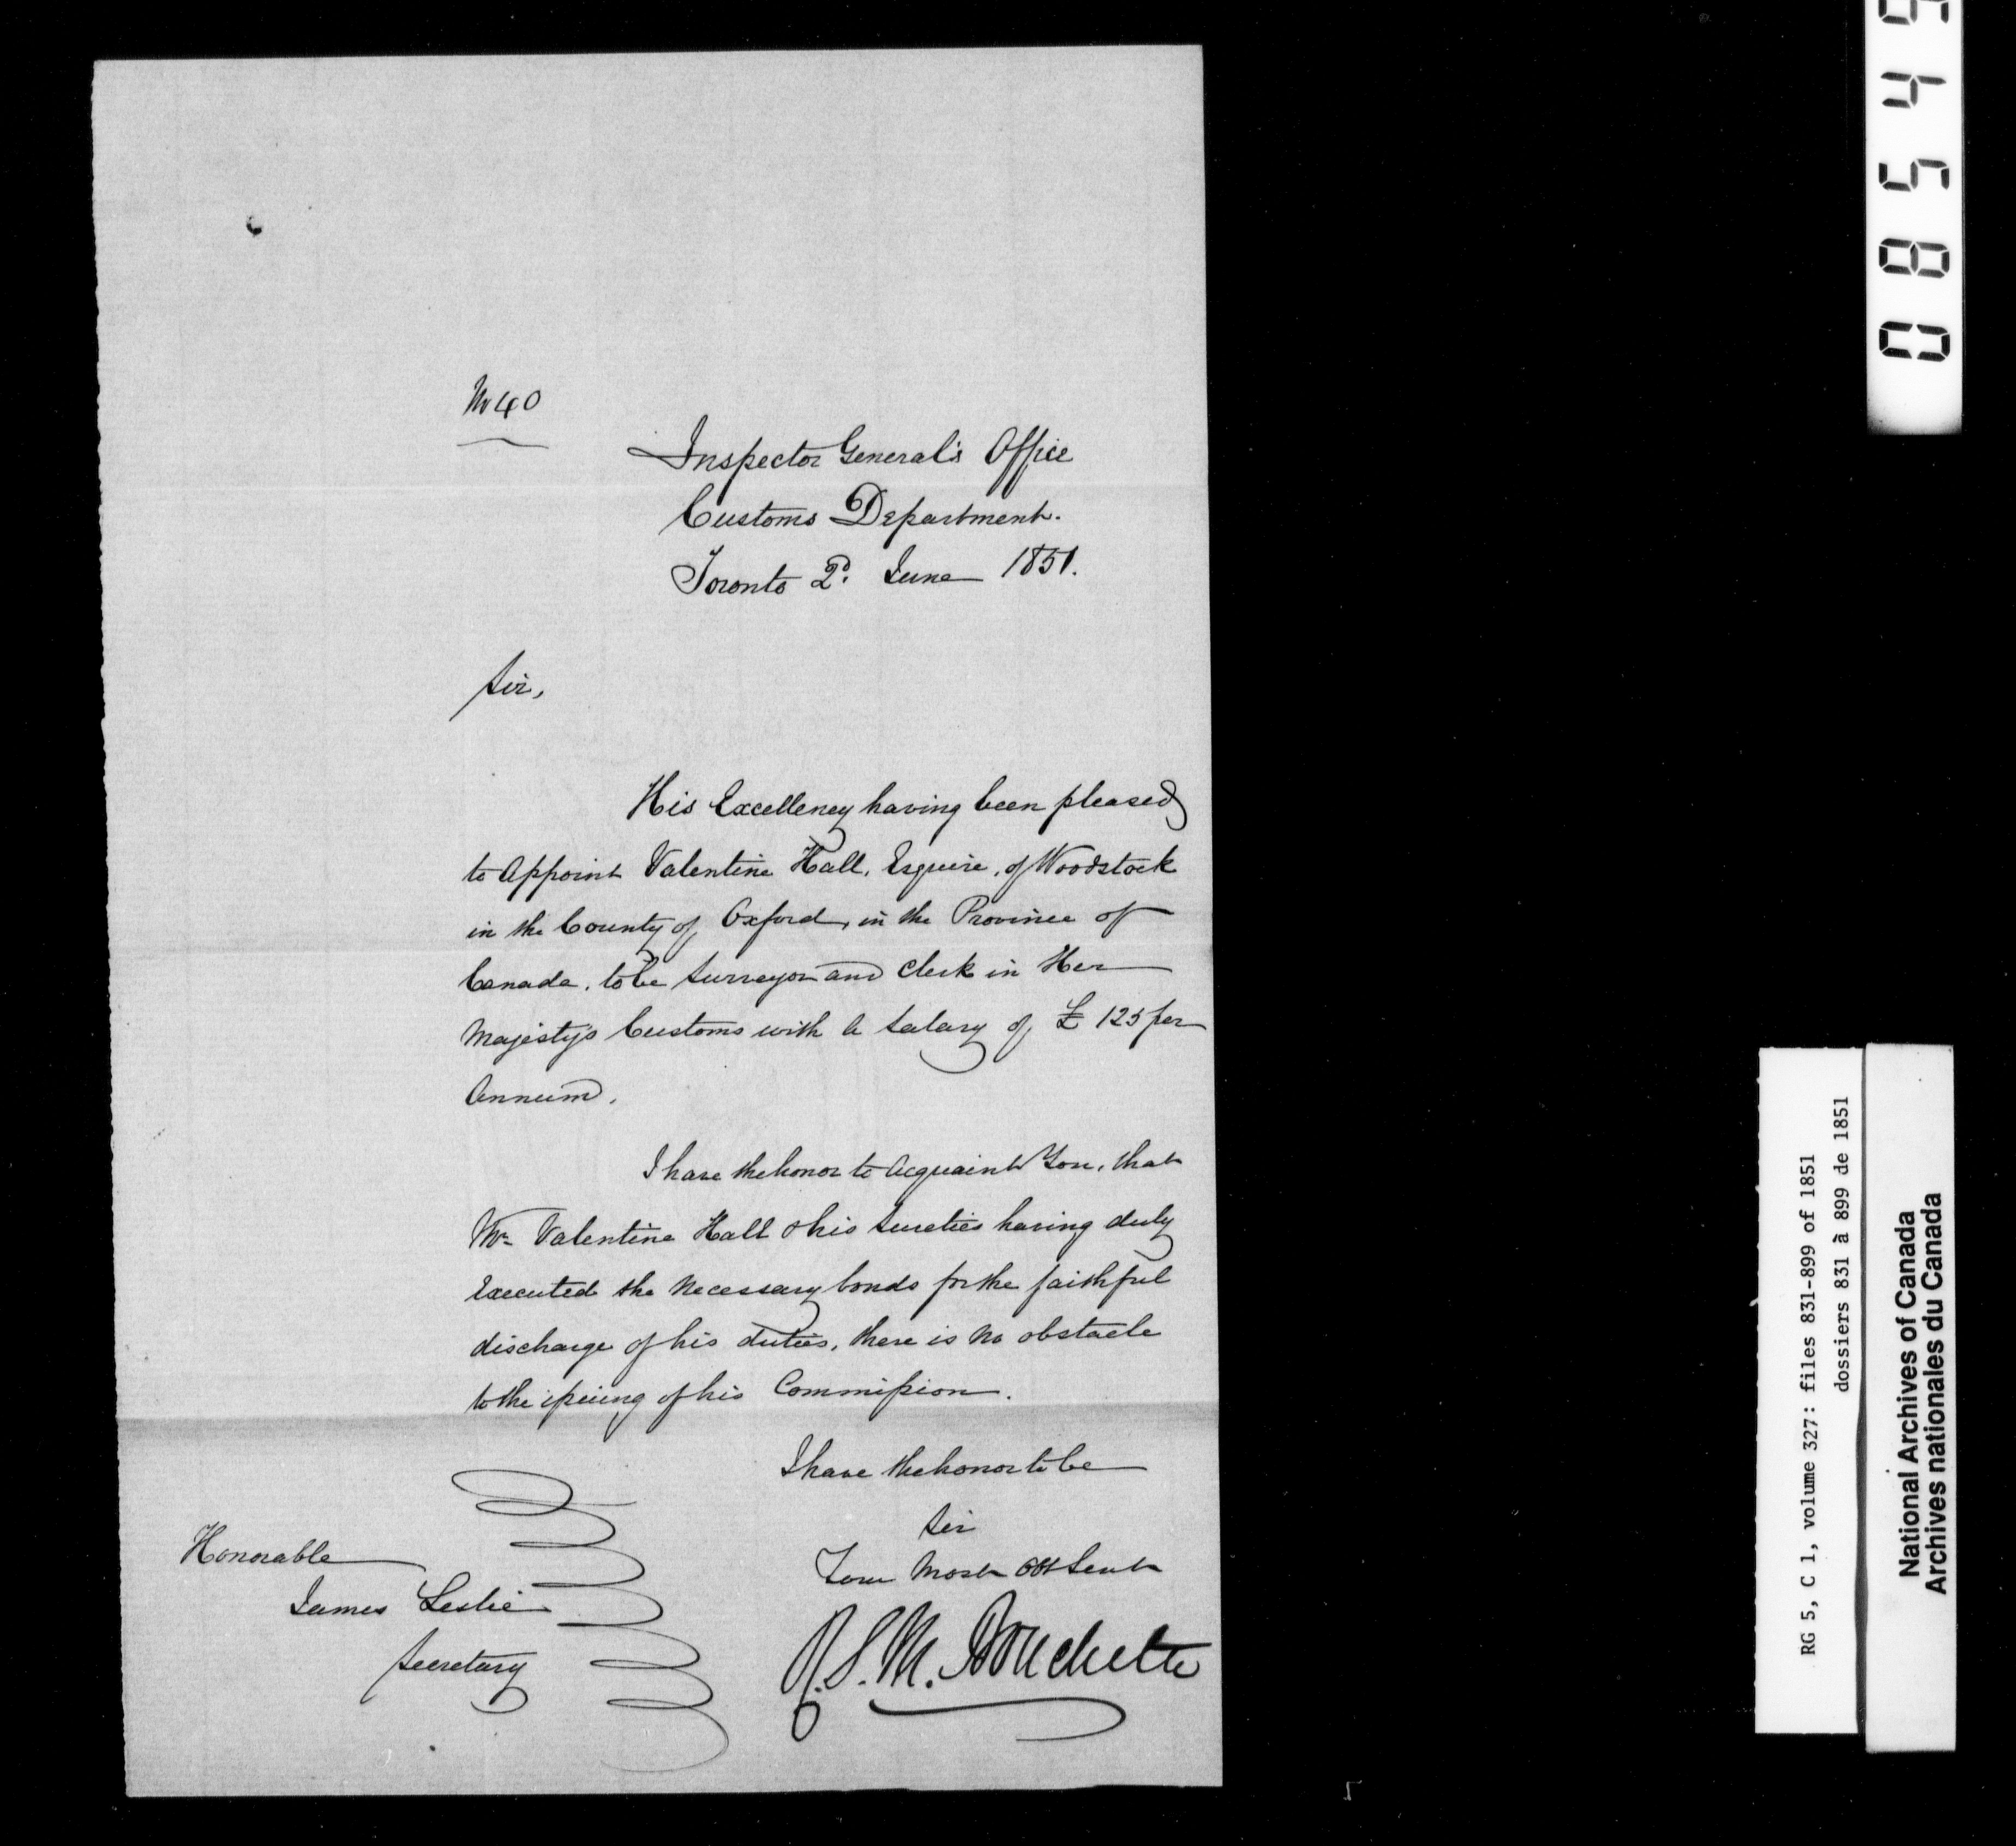 No 40
Inspector General's Office
Customs Department.
Toronto 2d. June 1851.
Sir,
His Excellency having been pleased
to Appoint Valentine Hall, Esquire, of Woodstock
in the County of Oxford, in the Province of
Canada, to be Surveyor and Clerk in Her
Majesty's Customs with a Salary of £ 125 per
Annum.
I have the honor to Acquaint You, that
Mr Valentine Hall & his Sureties having duly
Executed the Necessary bonds for the faithful
discharge of his duties, there is no obstacle
to the issuing of his Commission.
I have the honor to be
Sir
Your Most Obt Servt
R.S.M. Bouchette
Honorable
James Leslie
Secretary
08545
RG 5, C 1, volume 327: files 831-899 of 1851
dossiers 831 à 899 de 1851
National Archives of Canada
Archives nationales du Canada